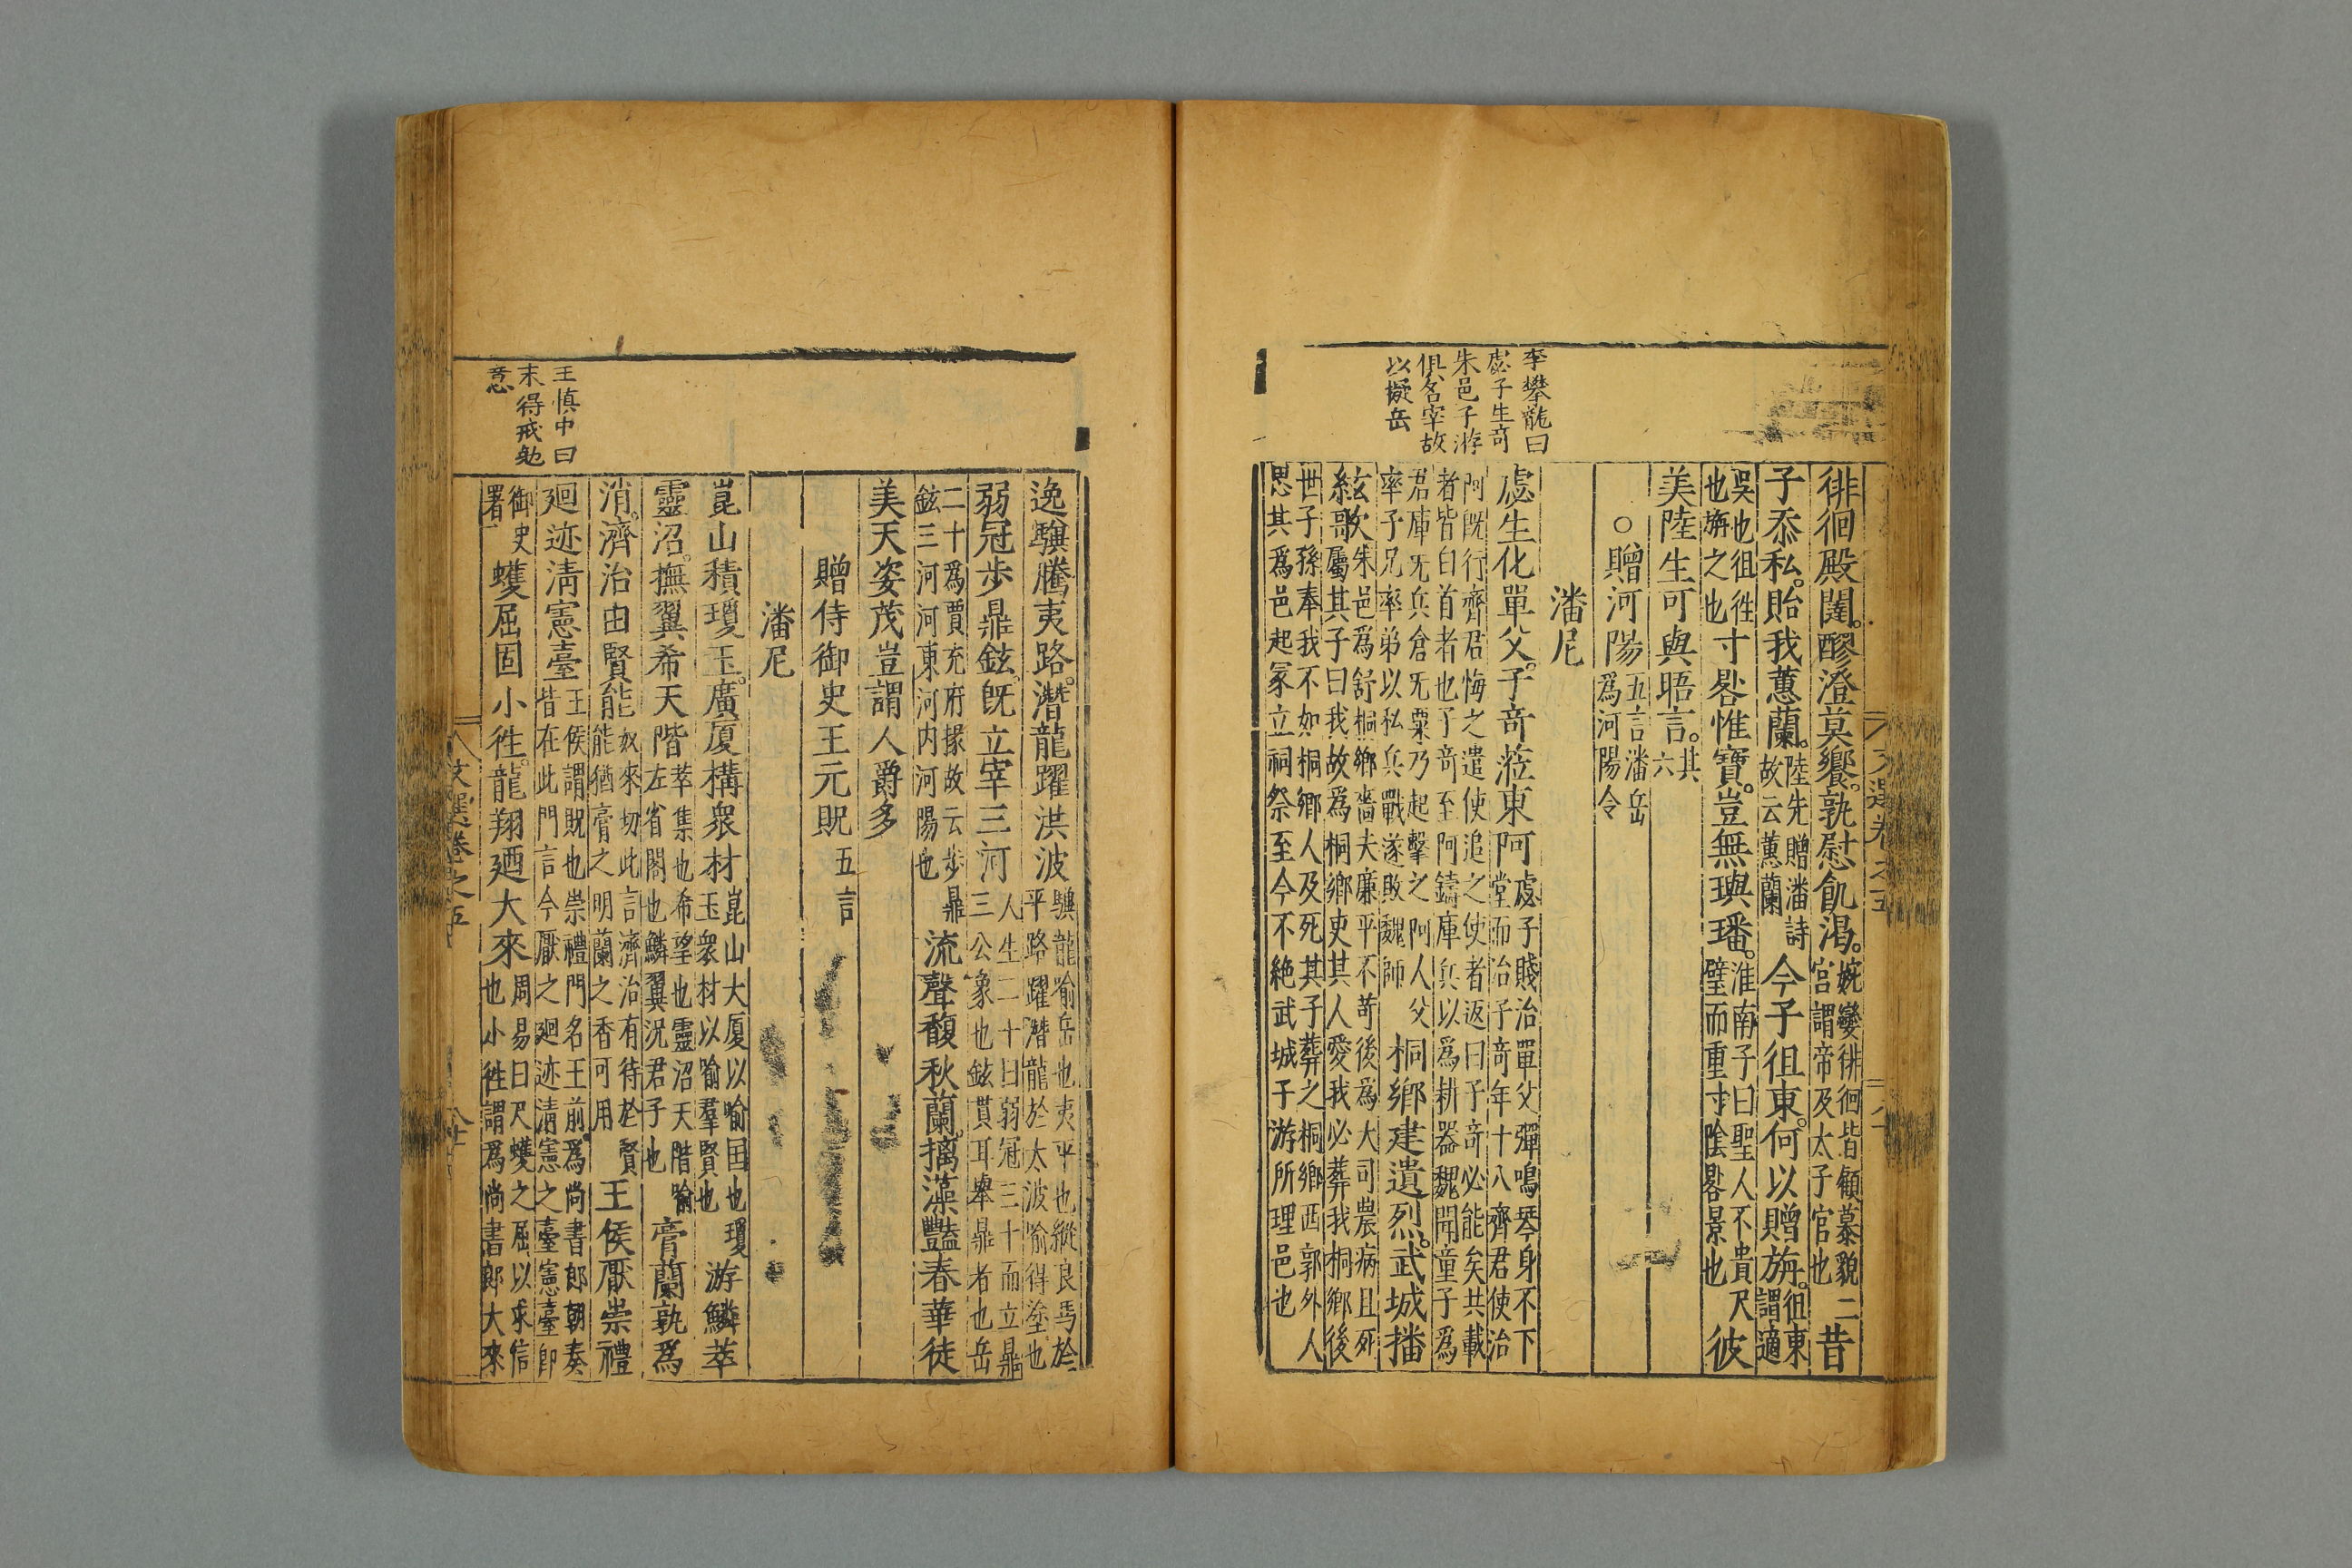 李攀龍曰
虙子生奇
朱邑子游
俱名宰故
以擬岳
徘徊殿闥。醪澄莫饗。孰慰飢渴。婉孌徘徊皆顧慕貌二
宮謂帝及太子官也昔
子忝私。貽我蕙蘭。陸先贈潘詩
故云蕙蘭今子徂東。何以贈旃。徂東
謂適
吳也徂徃
也旃之也寸晷惟寶。豈無璵璠。淮南子曰聖人不貴尺
璧而重寸陰晷景也彼
美陸生可與晤言。其
六
○贈河陽五言潘岳
為河陽令
潘尼
虙生化單父。子奇蒞東阿虙子賤治單父彈鳴琴身不下
堂而治子奇年十八齊君使治
阿既行齊君悔之遣使追之使者返曰子奇必能矣共載
者皆白首者也子奇至阿鑄庫兵以為耕器魏聞童子為
君庫旡兵倉旡粟乃起擊之阿人父
率子兄率弟以私兵戰遂敗魏師桐鄉建遺烈。武城播
絃歌朱邑為舒桐鄉嗇夫廉平不苛後為大司農病且死
屬其子曰我故為桐鄉吏其人愛我必葬我桐鄉後
世子孫奉我不如桐鄉人及死其子葬之桐鄉西郭外人
思其為邑起冢立祠祭至今不絶武城子游所理邑也
王慎中曰
末得戒勉
意
逸驥騰夷路。潛龍躍洪波驥龍喻岳也夷平也縱良馬於
平路躍潛龍於太波喻得塗也
弱冠步鼎鉉。既立宰三河人生二十曰弱冠三十而立鼎
三公象也鉉貫耳舉鼎者也岳
二十為賈充府掾故云步鼎
鉉三河河東河内河陽也流聲馥秋蘭。摛藻豔春華徒
美天姿茂豈謂人爵多
贈侍御史王元貺五言
潘尼
崑山積瓊玉。廣厦構衆材崑山大厦以喻国也瓊
玉衆材以喻羣賢也游鱗萃
靈沼。撫翼希天階萃集也希望也靈沼天階喻
左省閣也鱗翼況君子也膏蘭孰為
消。濟治由賢能奴來切此言濟治有待於賢
能猶膏之明蘭之香可用王侯厭崇禮
廻迹淸憲臺王侯謂貺也崇禮門名王前為尚書郎朝奏
皆在此門言今厭之廻迹淸憲之臺憲臺卽
御史
署蠖屈固小徃。龍翔廼大來周易曰尺蠖之屈以求信
也小徃謂為尚書郎大來
文選卷之五